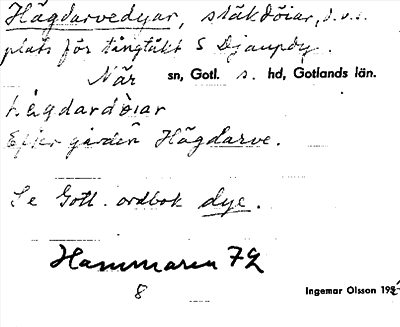 Hägdarvedyar, stäkdöiar, d.v.s.
plats för tångtäkt S Djaupdy.
När sn, Gotl. s. hd, Gotlands län.
hägdardòiar
Efter gården Hägdarve.
Se Gotl. ordbok dye.
Hammaren 72
8 Ingemar Olsson 195